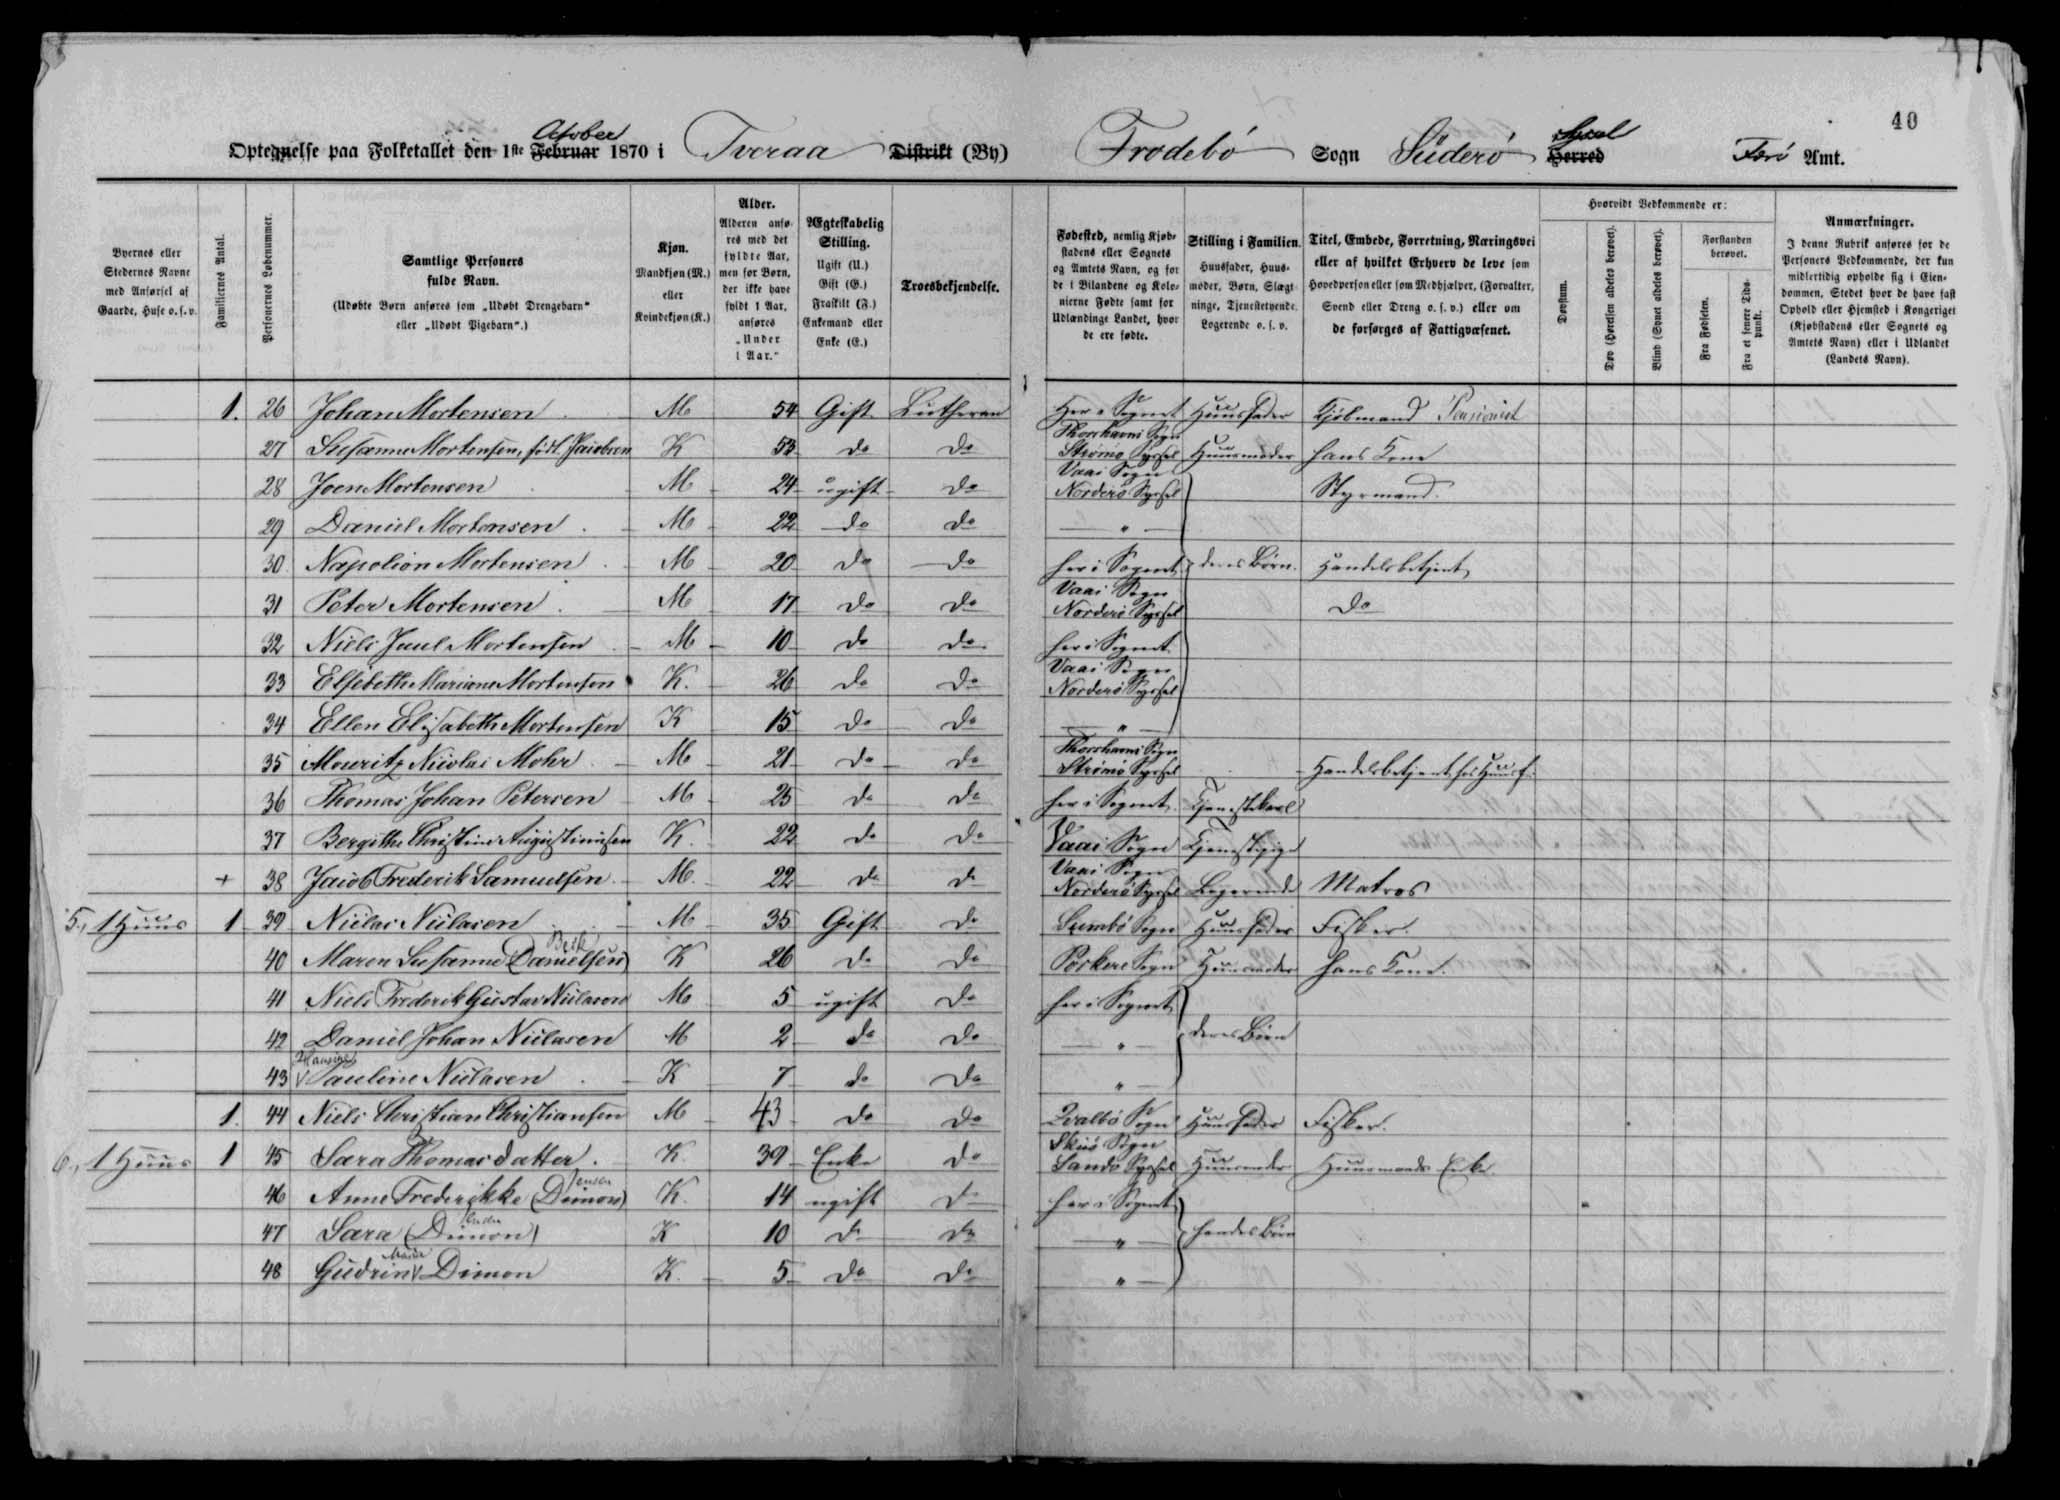 40
Optegnelse paa Folketallet den 1ste Februar Octobr 1870 i Tveraa Distrikt (By) Frodebö Sogn Süderö Herred Syssel Færö Amt.
Byernes eller Stedernes Navne med Anførsel af Gaarde, Huse o. s. v.
Familiernes Antal.
Personernes Løbenummer.
Samtlige Personers fulde Navn. (Udøbte Børn anføres som „Udøbt Drengebarn“ eller „Udøbt Pigebarn“.)
Kjøn. Mandkjøn (M.) eller Kvindekjøn (K.)
Alder. Alderen anføres med det fyldte Aar, men for Børn, der ikke have fyldt 1 Aar, anføres „Under 1 Aar.“
Ægteskabelig Stilling. Ugift (U.) Gift (G.) Fraskilt (F.) Enkemand eller Enke (E.)
Troesbekjendelse.
Fødested, nemlig Kjøbstadens eller Sognets og Amtets Navn, og for de i Bilandene og Kolonierne Fødte samt for Udlændinge Landet, hvor de ere fødte.
Stilling i Familien. Huusfader, Huusmoder, Børn, Slægtninge, Tjenestetyende, Logerende o. s. v.
Titel, Embede, Forretning, Næringsvei eller af hvilket Erhverv de leve som Hovedperson eller som Medhjælper, (Forvalter, Svend eller Dreng o. s. v.) eller om de forsørges af Fattigvæsenet.
Hvorvidt Vedkommende er:
Døvstum.
Døv (Hørelsen aldeles berøvet).
Blind (Synet aldeles berøvet).
Forstanden berøvet.
Fra Fødselen.
Fra et senere Tidspunkt.
Anmærkninger. I denne Rubrik anføres for de Personers Vedkommende, der kun midlertidig opholde sig i Eiendommen, Stedet hvor de have fast Ophold eller Hjemsted i Kongeriget (Kjøbstadens eller Sognets og Amtets Navn) eller i Udlandet (Landets Navn).
1. 26 Johan Mortensen M 54 Gift Lutheran Her i Sognet Huusfader Kjöbmand Pensionist
27 Susanne Mortensen, född Jacobsen K 53 do do Thorshavns Sogn Strömö Syssel Huusmoder hans Kone
28 Joen Mortensen M 24 ugift do Vaai Sogn Norderö Syssel Styrmand.
29 Daniel Mortensen M 22 do do "
30 Napolion Mortensen M 20 do do her i Sognet deres Börn. Handelsbetjent
31 Peter Mortensen M 17 do do Vaai Sogn Norderö Syssel do
32 Niels Juul Mortensen M 10 do do her i Sognet
33 Elsebeth Mariane Mortensen K. 26 do do Vaai Sogn Norderö Syssel
34 Ellen Elisabeth Mortensen K 15 do do "
35 Mouritz Nicolai Mohr M 21 do do Thorshavns Sogn Strömö Syssel Handelsbetjent hos Huusf.
36 Thomas Johan Petersen M 25 do do her i Sognet Tjenestekarl
37 Bergithe Christine Augustinusen K. 22 do do Vaai Sogn Tjenestepige
+ 38 Jacob Frederik Samuelsen M. 22 do do Vaai Sogn Norderö Syssel Logerende Matros
5., 1 Huus 1 39 Niclas Niclasen M 35 Gift do Sumbö Sogn Huusfader Fisker.
40 Maren Susanne (Danielsen) K 26 do do Porkere Sogn Huusmoder hans Kone.
41 Niels Frederik Gustav Niclasen M 5 ugift do her i Sognet
42 Daniel Johan Niclasen M 2 do do " deres Börn
43 Hansine Pauline Niclasen K 7 do do "
1. 44 Niels Christian Christiansen M 43 do do Qvalbö Sogn Huusfader Fisker.
6., 1 Huus 1 45 Sara Thomasdatter. K. 39 Enke do Skuö Sogn Sandö Syssel Huusmoder Huusmands Enke
46 Anne Frederikke (Dimon) Jensen K. 14 ugift do her i Sognet
47 Sara (Dimon) K 10 do do " hendes Börn
48 Gudrin Maria Dimon K. 5 do do "